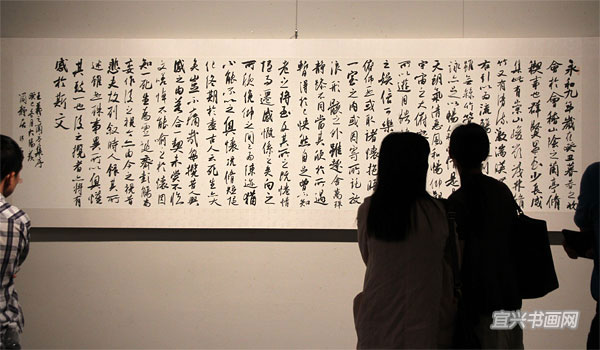 永和九年歲在癸丑暮春之初
會于會稽山陰之蘭亭脩
禊事也群賢畢至少長咸
集此地有崇山峻嶺茂林脩
竹又有清流激湍
右引以為流觴
雖無絲竹管
詠亦足以暢 是
天朗氣清惠風和暢仰觀
宇宙之大俯察
可以遊目騁
之娛信可樂
俯仰一世或取諸懷抱
一室之內或因寄所託放
浪形骸之外雖趣舍萬殊
靜躁不同當其欣於所遇
暫得於己快然自足曾不知
老之將至及其所之既惓情
隨事遷感慨係之矣向之
所欣俛仰之間以為陳迹猶
不能不以之興懷況脩短隨
化終期於盡古人云死生亦大
矣豈不痛哉每攬昔人興
感之由若合一契未嘗不臨
文嗟悼不能喻之於懷固
知一死生為虛誕齊彭殤為
妄作後之視今亦由今之視昔
悲夫故列敘時人錄其所
述雖世殊事異所以興懷
其致一也後之攬者亦將有
感於斯文
宜兴书画网